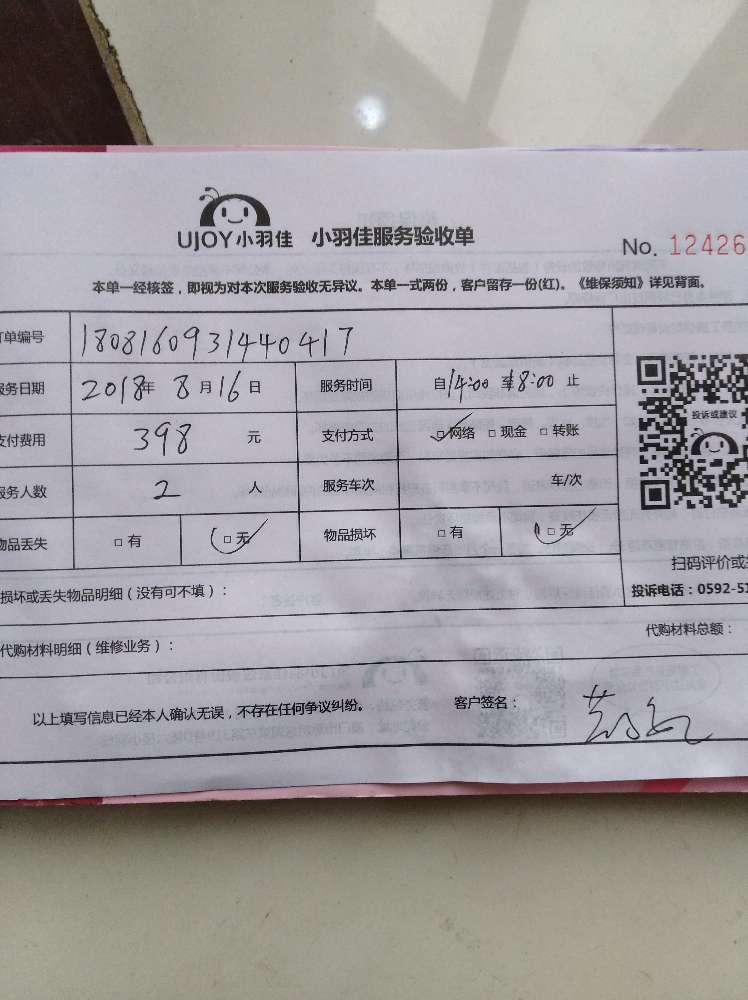 UJOY小羽佳 小羽佳服务验收单
No. 12426
本单一经核签，即视为对本次服务验收无异议。本单一式两份，客户留存一份(红)。《维保须知》详见背面。
订单编号 1808160931440417
服务日期 2018年 8月16日 服务时间 自14:00 至18:00 止
支付费用 398 元 支付方式 □网络 □现金 □转账
投诉或建议
服务人数 2 人 服务车次 车/次
物品丢失 □有 □无 物品损坏 □有 □无
扫码评价或
损坏或丢失物品明细（没有可不填）：
投诉电话：0592-51
代购材料明细（维修业务）：
代购材料总额：
以上填写信息已经本人确认无误，不存在任何争议纠纷。 客户签名：